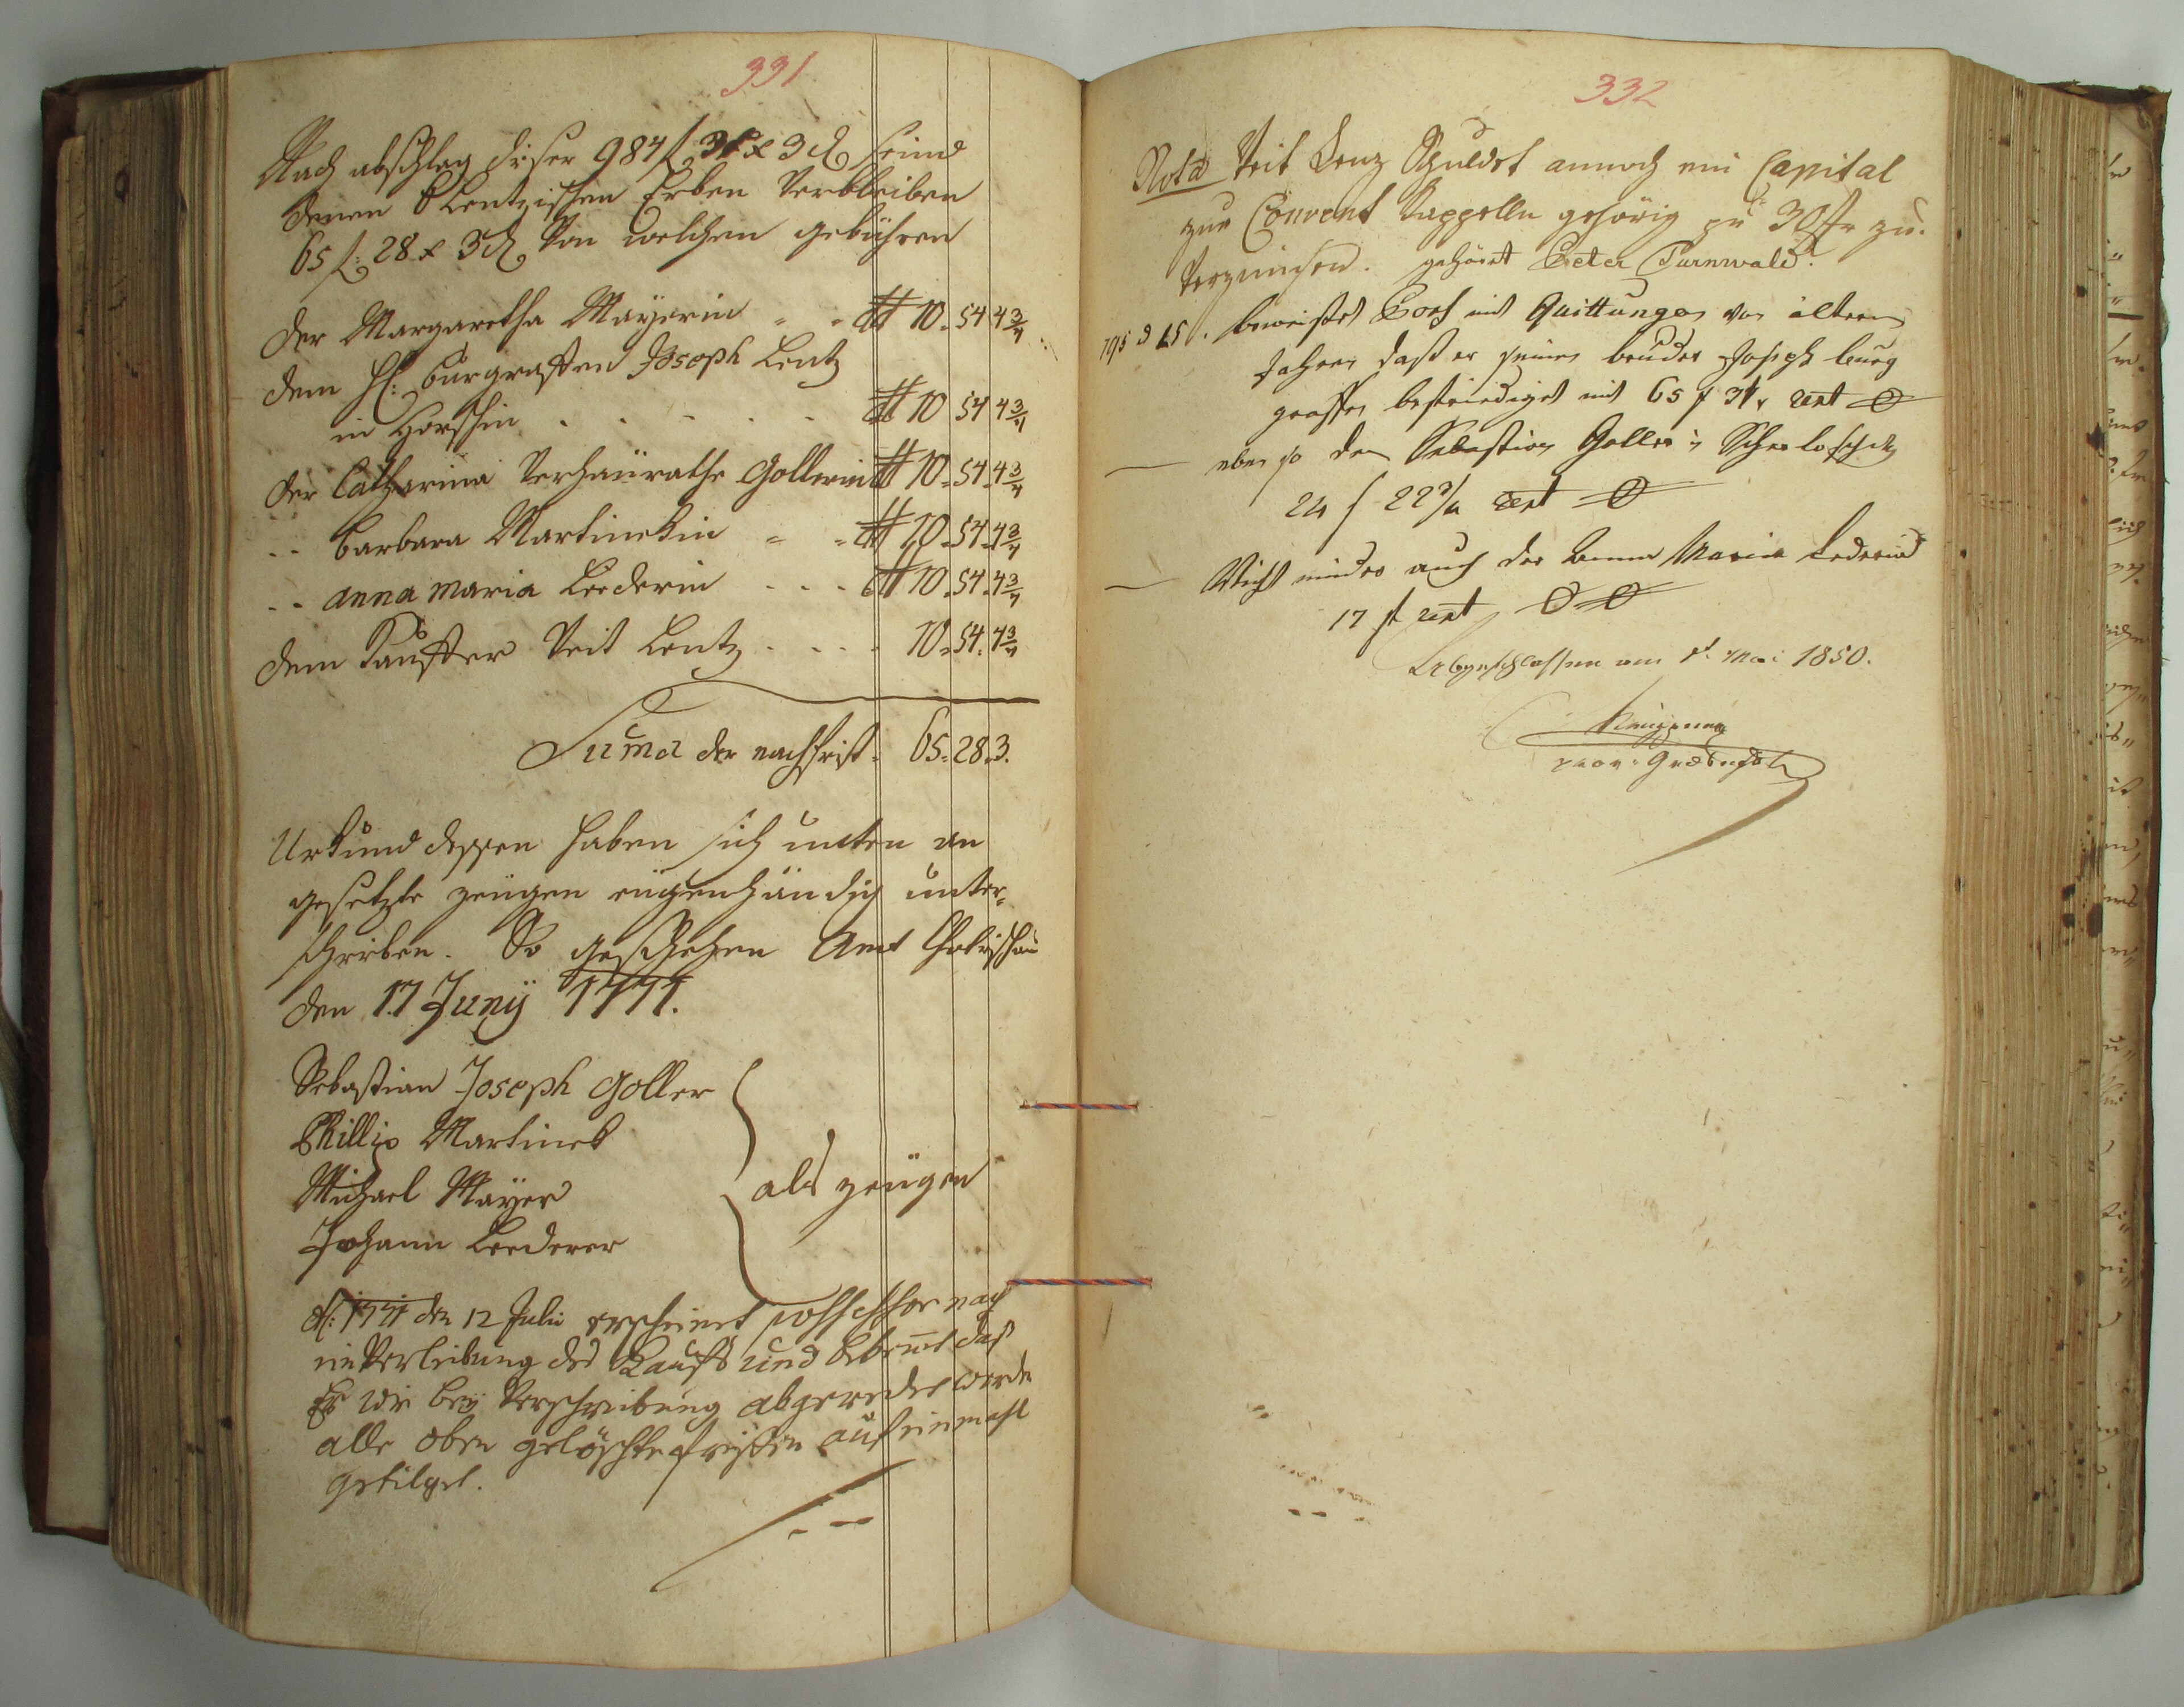 331
Nach abschlag dieser 984 f 31 x 3 d seind
denen Lentzischen Erben Verbleiben
65 f: 28 x 3 d Von welchen gebühren
der Margaretha Mayerin 10. 54 4 3/4
dem H: burgraffen Joseph Lentz
in Horschin 10 54 4 3/4
der Catharina Verheurathe Gollerin 10. 54. 4 3/4
.. barbara Martinekin 10. 54. 4 3/4
.. anna maria Lederin 10. 54. 4 3/4
dem Kauffer Veit Lentz 10. 54. 4 3/4
Suma der nachfrist. 65. 28. 3.
Urkund dessen haben sich unten an
gesetzte zeugen eigenhändig unter-
schrieben. So geschehen Amt
den 17 Juny 1771.
Sebastian Joseph Goller
Phillip Martinek
Michael Mayer
Johann Leederer
als zeugen
A: 1771 den 12 Juli erscheinet possessor nach
einverleibung des Kaufs und daß
Er wie bey Verschreibung abgeredet worden
alle oben gelöschte fristen auf einmahl
getilget.
332
Nota Veit Lenz schuldet annoch ein Capital
zur Convent Kappelln gehörig zu 30 fr zu
Verzinnsen. gehöret Peter Turnwald.
beweiset Poss mit Quittungen von ältern
Jahren daß er seinen bruder Joseph burg
graffen befriediget mit 65 f
eben so den Sebastian Goller
24 f
Nicht minder auch der Anna Maria Lederin
17 f
Abgeschlossen am Mai 1850.